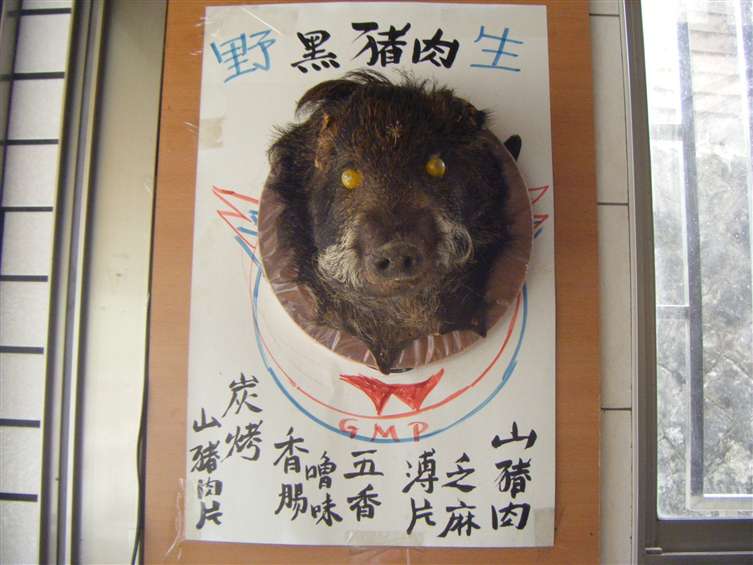 野黑豬肉生
GMP
山豬肉
乏麻
溥片
五香
嚕味
香腸
炭烤
山豬肉片